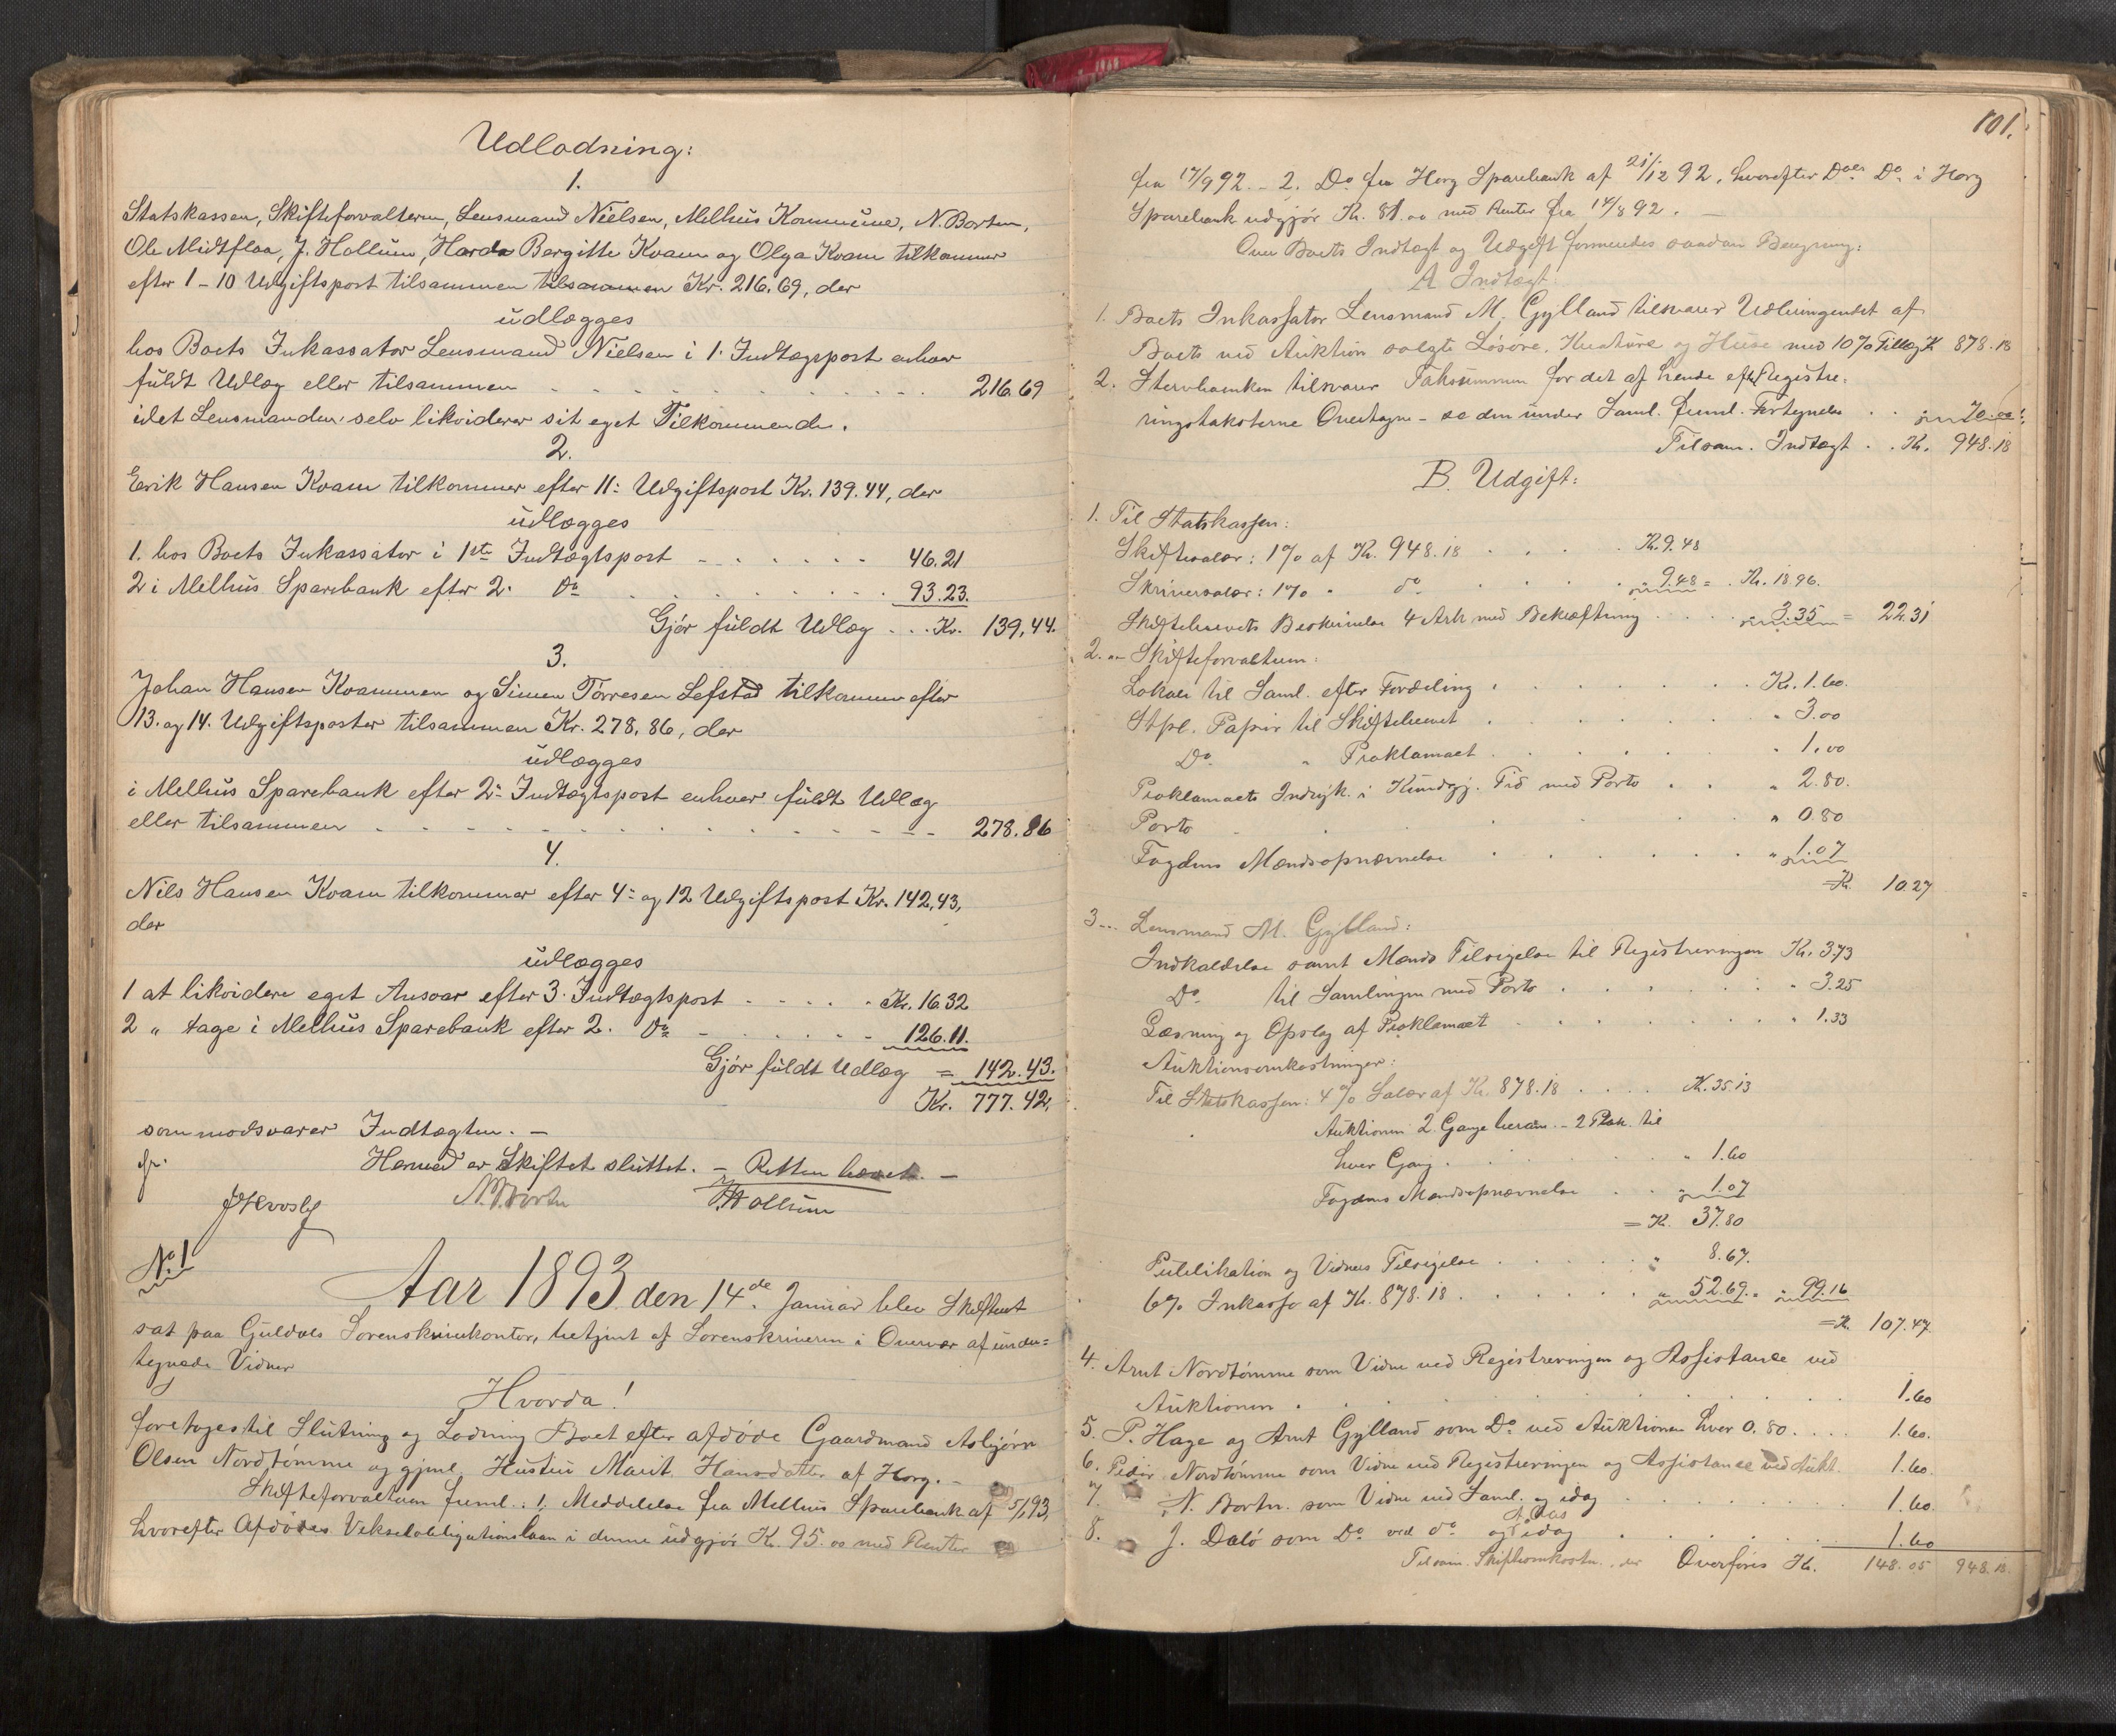 Udlodning:
1.
Statskassen, Skifteforvalteren, Lensmand Nielsen, Melhus Kommune, N. Borten,
Ole Midtflaa, J. Hollum, Harda Bergitte Kvam og Olga Kvam tilkommer
efter 1 - 10 Udgiftspost tilsammen tilsammen Kr. 216.69, der
udlægges
hos Boets Inkassator Lensmand Nielsen i 1. Indtægspost enhver
fuldt Udlæg eller tilsammen 216.69
idet Lensmanden selv likviderer sit eget Tilkommende.
2.
Erik Hansen Kvam tilkommer efter 11: Udgiftspost Kr. 139.44, der
udlægges
1. hos Boets Inkassator i 1ste Indtægtspost 46.21
2 i Melhus Sparebank efter 2. Do 93.23.
Gjør fuldt Udlæg . . . Kr. 139,44.
3.
Johan Hansen Kvammen og Simen Torresen Lefstad tilkommer efter
13. og 14. Udgiftsposter tilsammen Kr. 278,86, der
udlægges
i Melhus Sparebank efter 2: Indtægtspost enhver fuldt Udlæg
eller tilsammen 278.86
4.
Nils Hansen Kvam tilkommer efter 4: og 12 Udgiftspost Kr. 142,43,
der
udlægges
1 at likvidere eget Ansvar efter 3. Indtægtspost Kr. 16.32
2 " tage i Melhus Sparebank efter 2. Do 126.11.
Gjør fuldt Udlæg = 142.43.
Kr. 777.42,
som modsvarer Indtægten. -
Hermed er Skiftet sluttet. - Retten hævet. -
N. Borten J. Hollum
No. 1
Aar 1893 den 14de Januar blev Skifteret
sat paa Guldals Sorenskriverkontor, betjent af Sorenskriveren i Overvær af under=
tegnede Vidner
Hvorda!
foretoges til Slutning og Lodning Boet efter afdøde Gaardmand Asbjørn
Olsen Nordtømme og gjenl. Hustru Marit Hansdatter af Horg. -
Skifteforvalteren freml.: 1, Meddelelse fra Melhus Sparebank af 5/1 93,
hvorefter Afdødes Vekselobligationslaan i denne udgjør Kr. 95.00 med Renter
101.
fra 17/9 92. - 2. Do fra Horg Sparebank af 21/12 92, hvorefter Do i Horg
Sparebank udgjør Kr. 81.00 med Renter fra 14/8 92. -
Over Boets Indtægt og Udgift formeredes saadan Beregning:
A Indtægt:
1. Boets Inkassator Lensmand M. Gylland tilsvarer Udbringendet af
Boets ved Auktion solgte Løsøre, Kreature og Huse med 10% Tillæg K 878.18
2. Stervboenken tilsvarer Taksummen for det af hende efter Registre:
ringstaksterne Overtagne - se den under Saml. freml. Fortegnelse " 70.00
Tilsam. Indtægt . . Kr. 948.18
B. Udgift:
1. Til Statskassen:
Skiftesalær: 1% af Kr. 948.18 Kr. 9.48
Skriversalær: 1% " do " 9.48 = . Kr. 18 96.
Skiftebrevets Beskrivelse 4 Ark med Bekræftning 3.35 = 22.31
2. " Skifteforvalteren:
Lokale til Saml. efter Fordeling Kr. 1.60.
Stpl. Papir til Skiftebrevet " 3.00
Do. " Proklamaet " 1.00
Proklamaets Indryk. i Kundgj. Tid med Porto " 2.80.
Porto " 0.80
Fogdens Mændsopnævnelse " 1.07
= K. 10.27
3 " Lensmand M. Gylland:
Indkaldelse samt Mænds Tilsigelse til Registreringen Kr. 3.73
Do. til Samlingen med Porto " 3.25
Læsning og Opslag af Proklamaet " 1.33
Auktionsomkostninger:
Til Statskassen: 4% Salær af Kr. 878.18 K. 35.13
Auktionen 2 Gange beram. - 2 Plak. til
hver Gang. " 1.60
Fogdens Mændsopnævnelse " 1.07
= K. 37.80
Publikation og Vidners Tilsigelse " 8.67.
6% Inkasso af Kr. 878.18 " 52.69. " 99.16
= K. 107.47
4. Arnt Nordtømme som Vidne ved Registreringen og Assistance ved
Auktionen 1.60
5. P. Hage og Arnt Gylland som Do ved Auktionen hver 0.80 1.60.
6. Peder Nordtømme som Vidne ved Registreringen og Assistance ved Aukt. 1.60.
7. N. Borten som Vidne ved Saml. og idag 1.60.
8. J. Dalø som Do ved do og idag 1.60
Tilsam. Skifteomkostn. der Overføres Kr. 148.05 948.18.